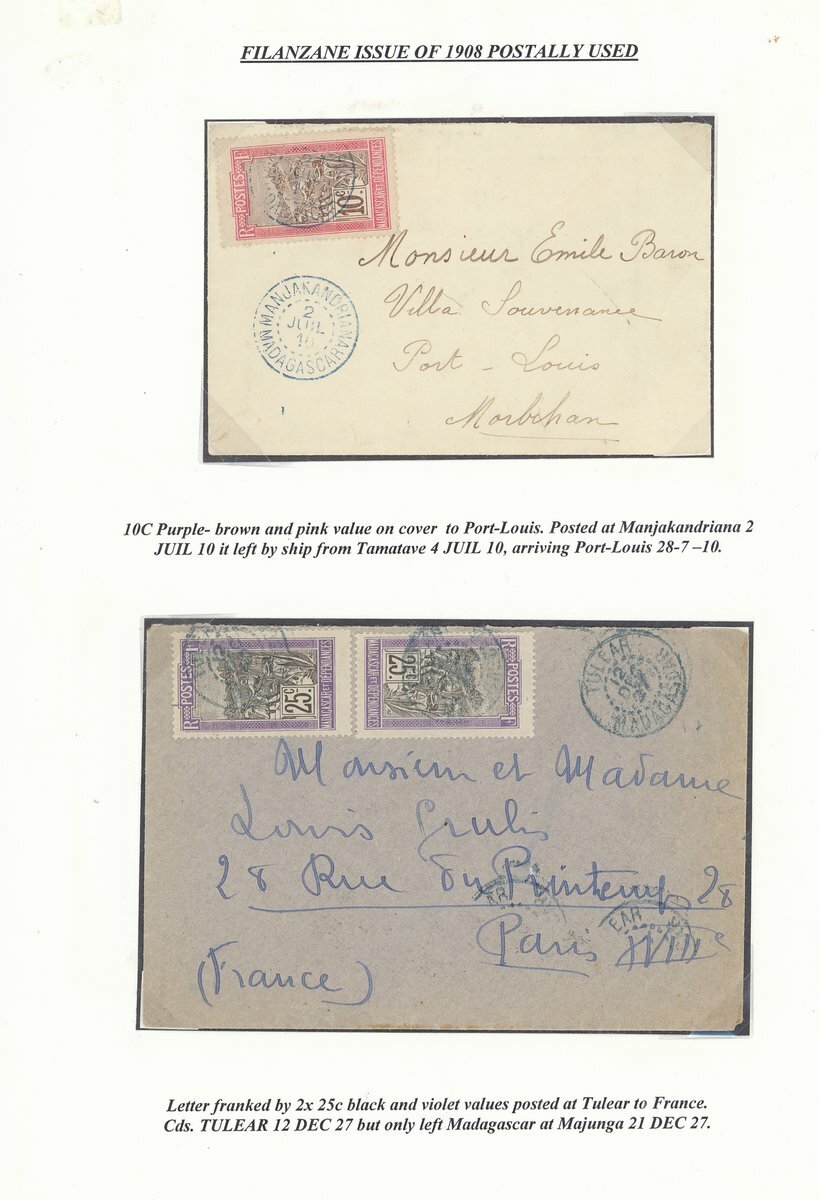 FILANZANE ISSUE OF 1908 POSTALLY USED
R POSTES F
10c
MADAGASCAR ET DÉPENDANCES
MANJAKANDRIANA
2
JUIL
10
MADAGASCAR
Monsieur Emile Baron
Villa Souvenance
Port - Louis
Morbihan
10C Purple- brown and pink value on cover to Port-Louis. Posted at Manjakandriana 2
JUIL 10 it left by ship from Tamatave 4 JUIL 10, arriving Port-Louis 28-7 –10.
R POSTES F
25c
MADAGASCAR ET DÉPENDANCES
R POSTES F
25c
MADAGASCAR ET DÉPENDANCES
TULEAR
12
DEC
27
MADAGASCAR
Monsieur et Madame
Louis
28 Rue du Printemps 28
EAR
EAR
Paris XVIIe
(France)
Letter franked by 2x 25c black and violet values posted at Tulear to France.
Cds. TULEAR 12 DEC 27 but only left Madagascar at Majunga 21 DEC 27.